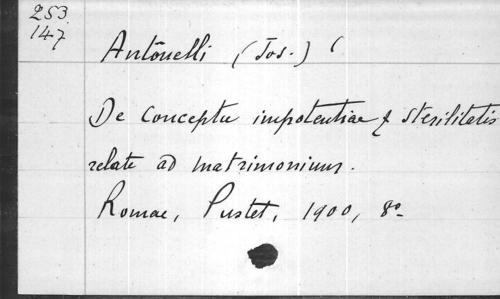 253.
147
Antonelli (Jos.) (
De conceptu impotentiae & sterilitatis
relate ad matrimonium.
Romae, Pustet, 1900, 8º